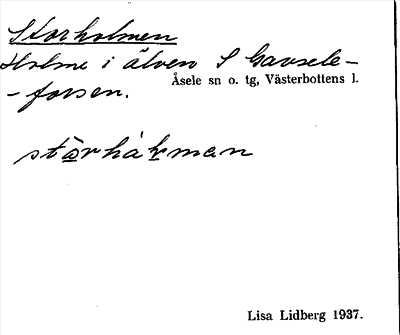 Storholmen
Holme i älven S Gavsele-
-forsen.
Åsele sn o. tg, Västerbottens l.
stòrhåḷman
Lisa Lidberg 1937.